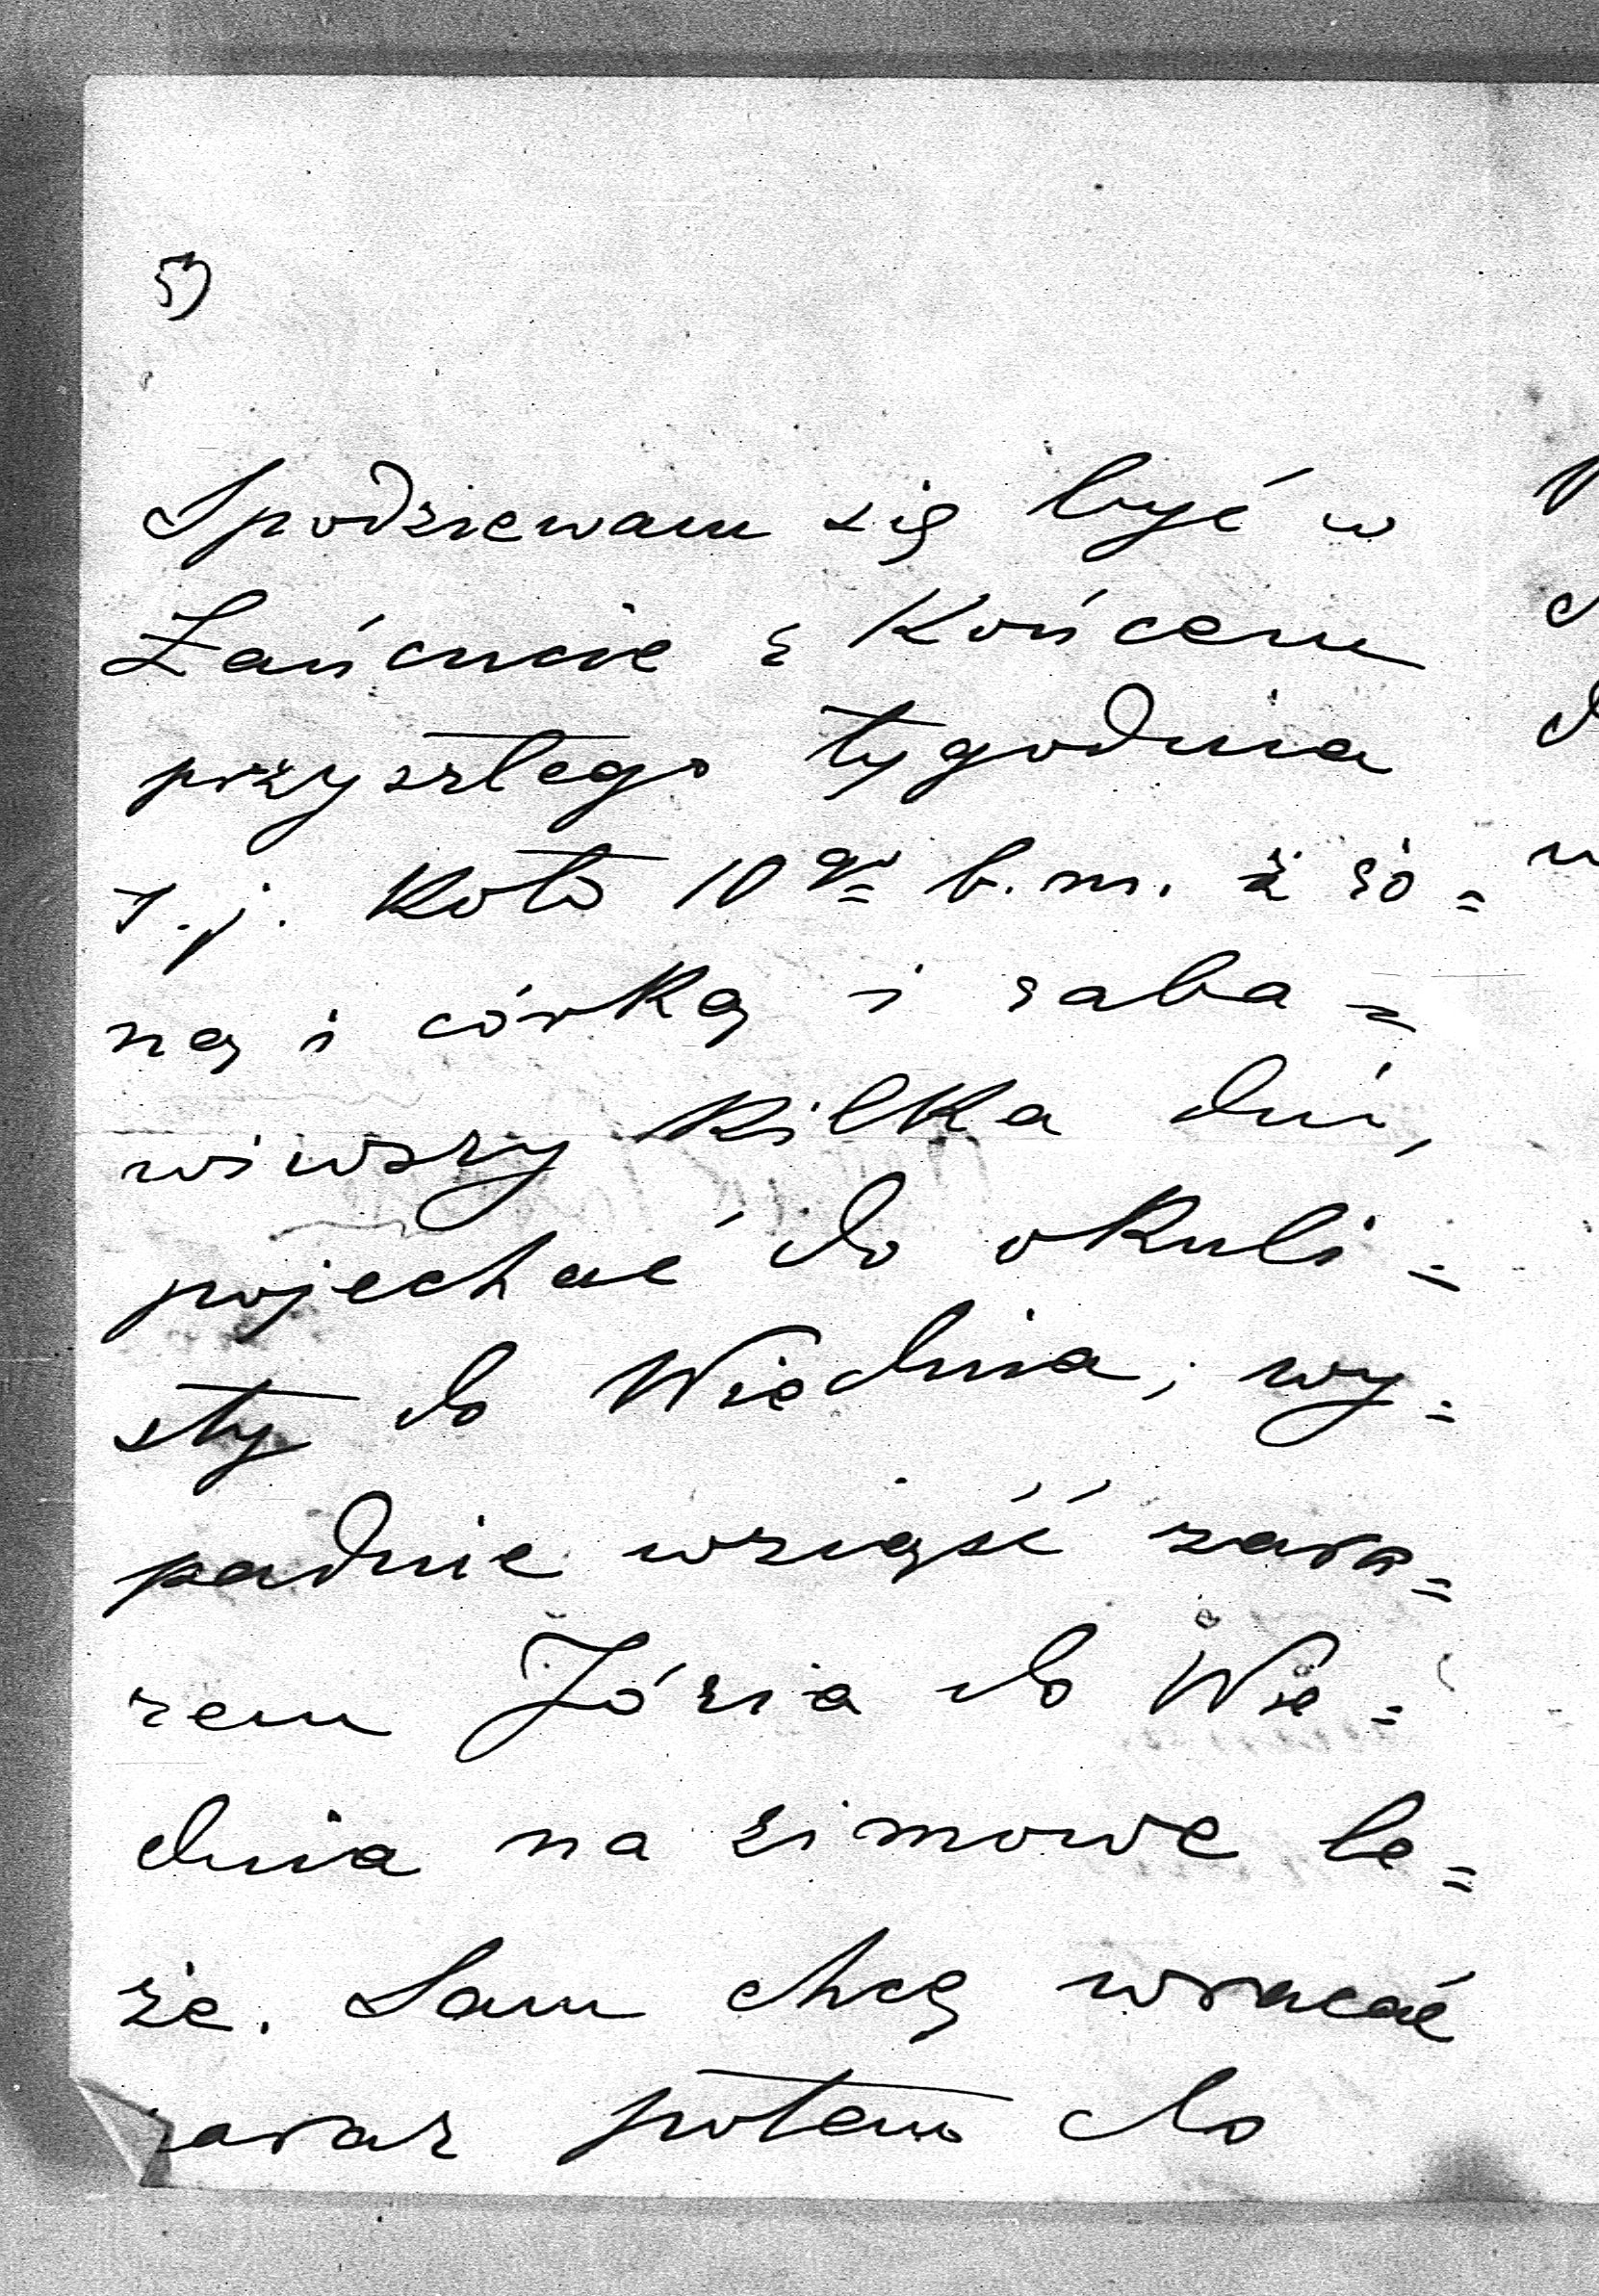 5)
Spodziewam się być w
Łańcucie z końcem
przyszłego tygodnia
t.j. koło 10go b.m. z żo=
ną i córką i zaba=
wiwszy kilka dni,
pojechać do okuli=
sty do Wiednia; wy=
padnie wziąść zara=
zem Józia do Wie=
dnia na zimowe le=
że. Sam chcę wracać
zaraz potem do